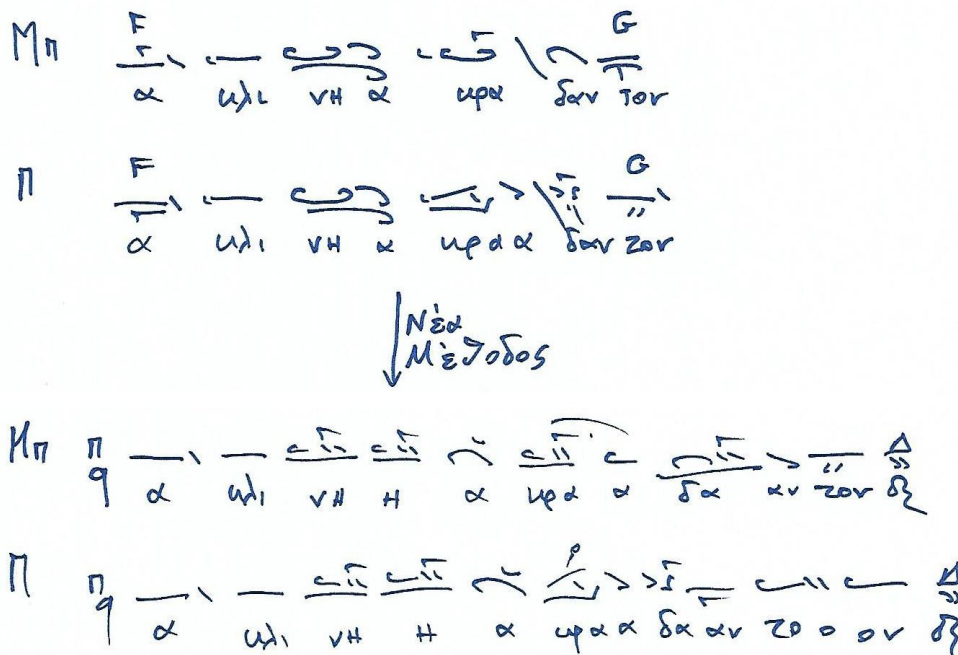 F G
Μπ
α κλι νη α κρα δαν τον
F G
Π
α κλι νη α κρα α δαν τον
Νέα
Μέθοδος
Μπ π q Δ
α κλι νη η α κρα α δα αν τον
Π π q Δ
α κλι νη η α κρα α δα αν το ο ον